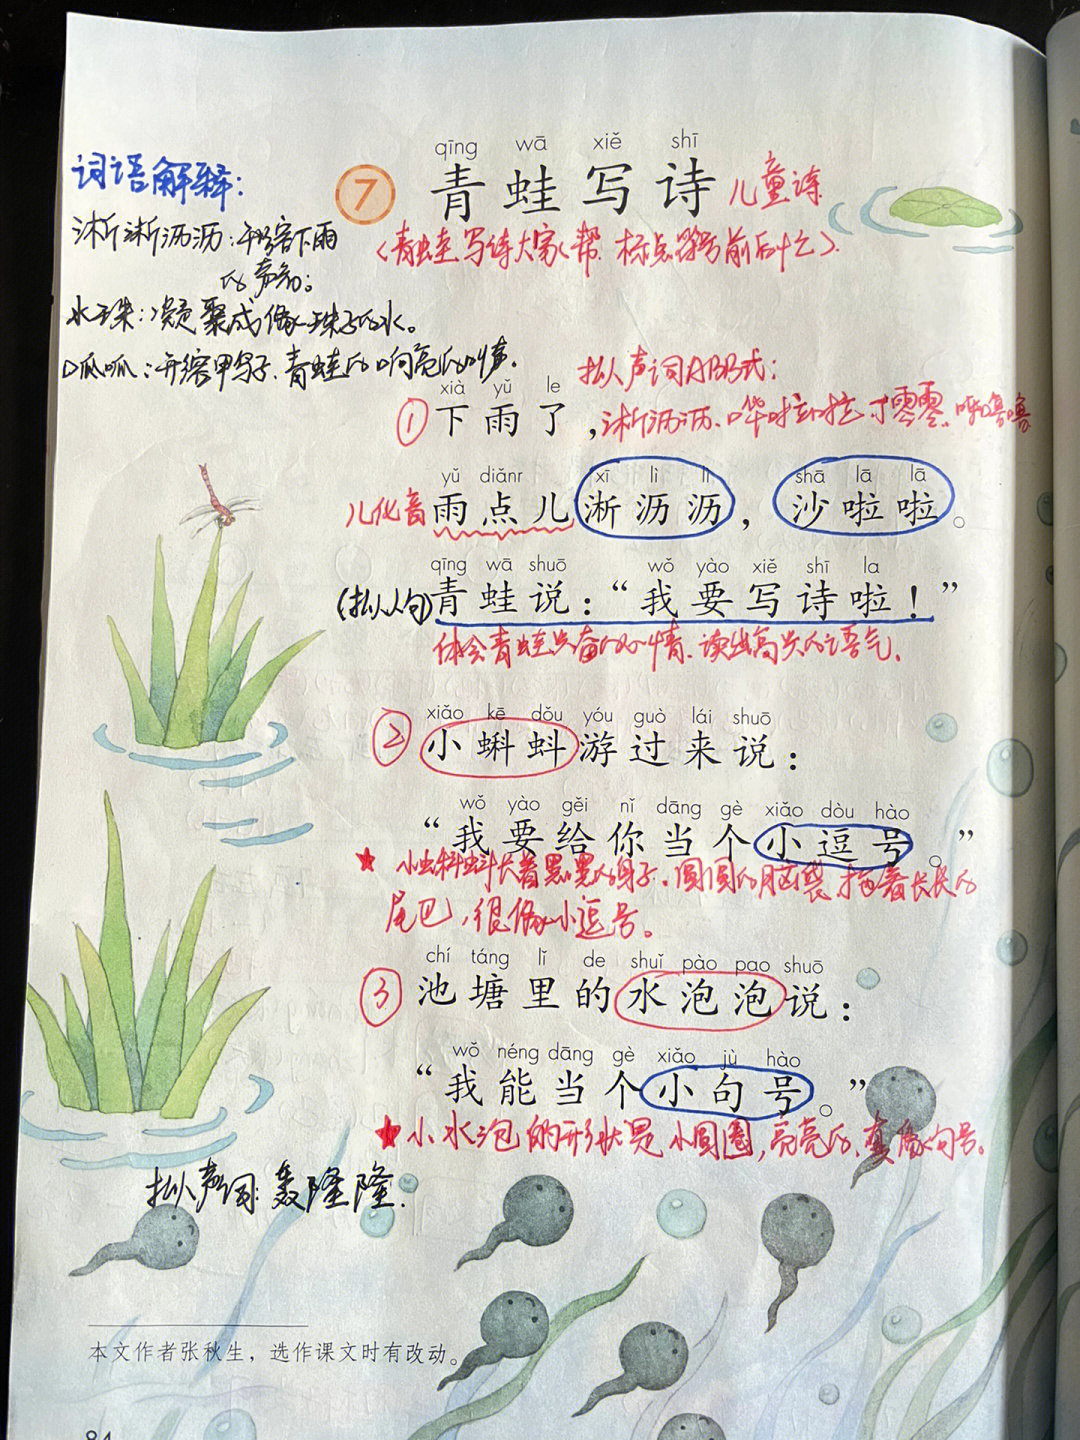 qīng wā xiě shī
7 青蛙写诗 儿童诗
(青蛙写诗大家帮,标点符号前后忙)
词语解释:
淅淅沥沥:形容下雨
的声音。
水珠:凝聚成像珠子的水。
呱呱:形容鸭子、青蛙的响亮的叫声。
拟声词ABB式:
xià yǔ le
①下雨了,淅沥沥、哗啦啦、丁零零、呼噜噜
yǔ diǎnr xī lì lì shā lā lā
儿化音 雨点儿淅沥沥,沙啦啦。
qīng wā shuō wǒ yào xiě shī la
(拟人句)青蛙说:“我要写诗啦!”
体会青蛙兴奋的心情,读出高兴的语气。
xiǎo kē dǒu yóu guò lái shuō
②小蝌蚪游过来说:
wǒ yào gěi nǐ dāng gè xiǎo dòu hào
“我要给你当个小逗号。”
★小蝌蚪长着黑黑的身子,圆圆的脑袋,拖着长长的
尾巴,很像小逗号。
chí táng lǐ de shuǐ pào pao shuō
③池塘里的水泡泡说:
wǒ néng dāng gè xiǎo jù hào
“我能当个小句号。”
★小水泡的形状是小圆圈,亮亮的,真像句号。
拟声词:轰隆隆.
本文作者张秋生,选作课文时有改动。
84